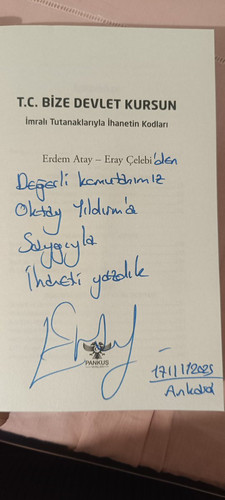 T.C. BİZE DEVLET KURSUN
İmralı Tutanaklarıyla İhanetin Kodları
Erdem Atay – Eray Çelebi'den
Değerli komutanımız
Oktay Yıldırım'a
Saygıyla
İhaneti yazdık
PANKUŞ
17/1/2025
Ankara